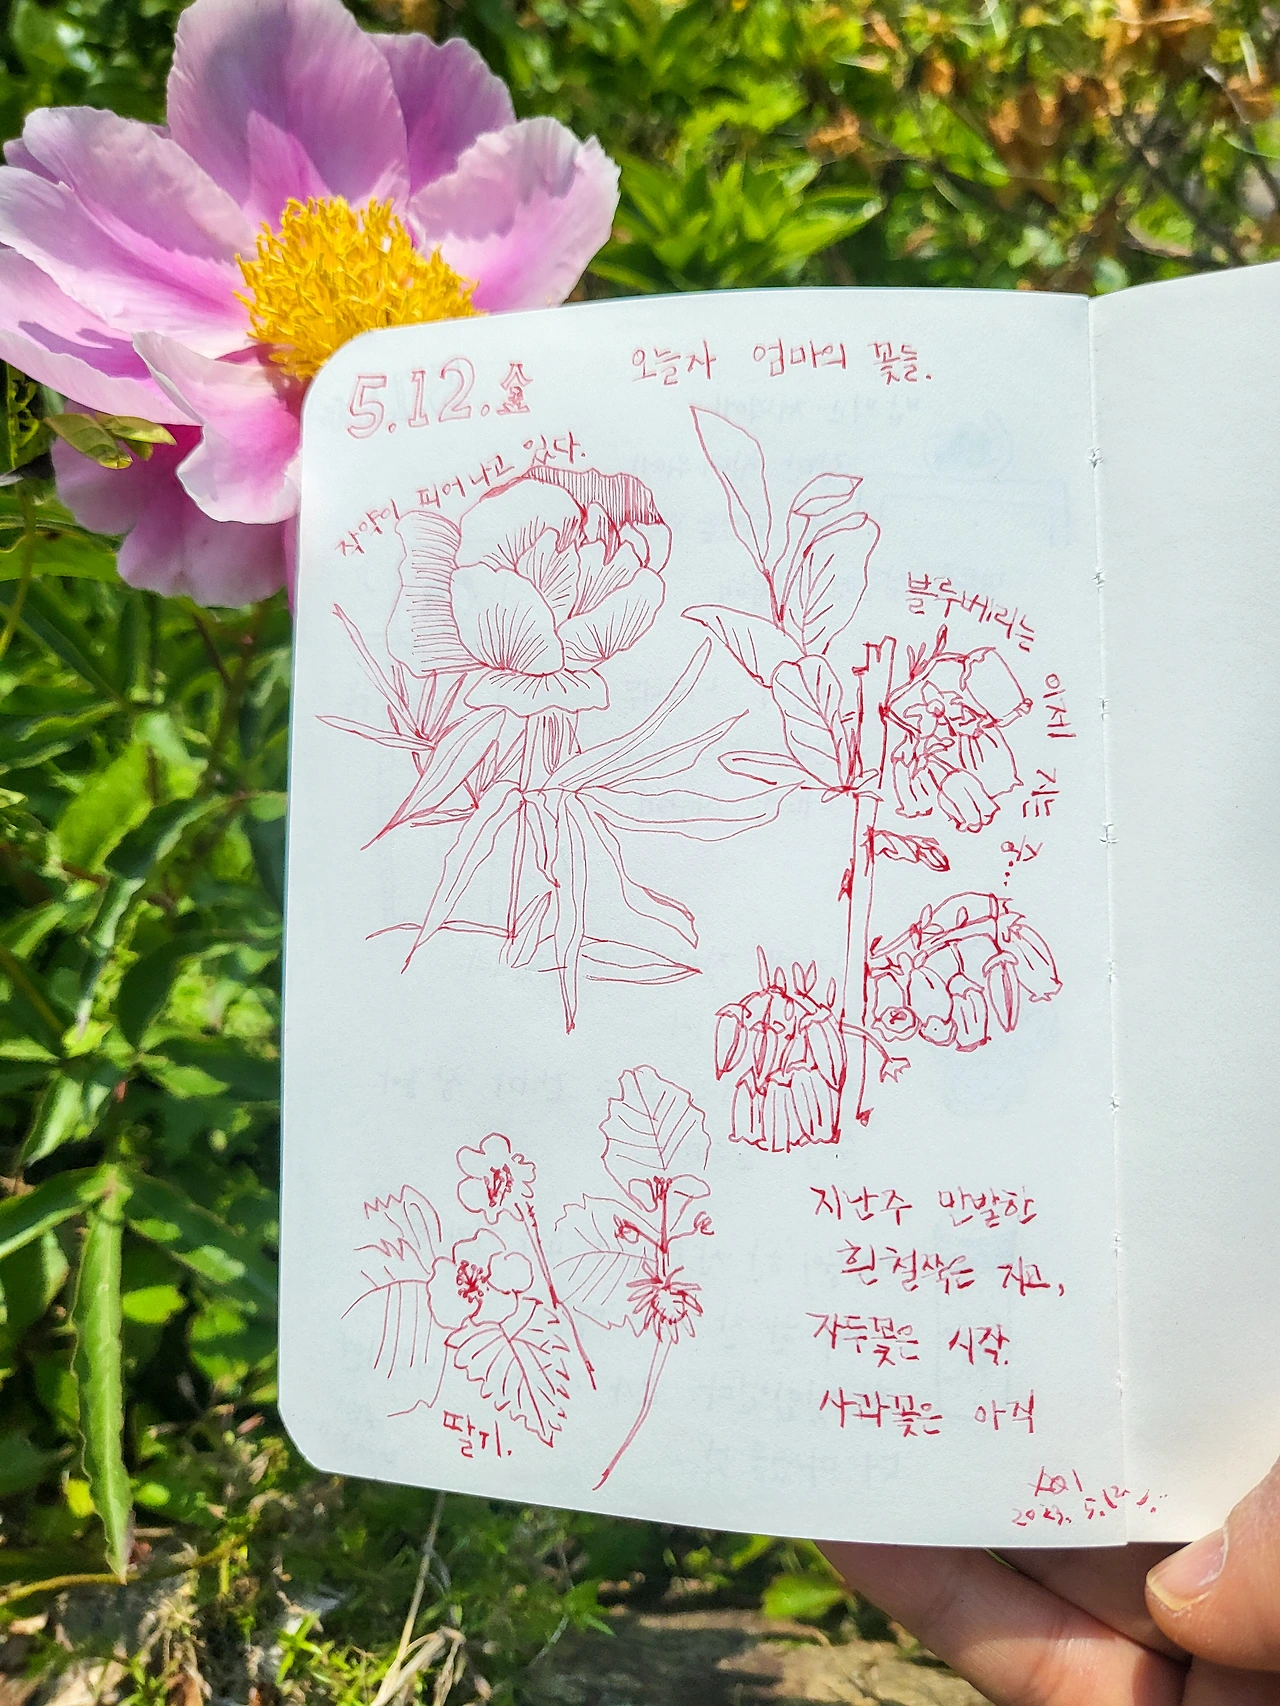 5.12.金
오늘자 엄마의 꽃들.
작약이 피어나고 있다.
블루베리는
이제
지는
딸기.
지난주 만발한
흰철쭉은 지고,
자두꽃은 시작.
사과꽃은 아직
2023. 5.12